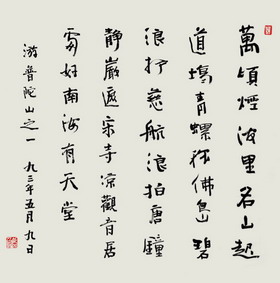 萬頃煙海里名山起
道場青螺稱佛島碧
浪抒慈航浪拍唐鐘
静巖遮宋寺凉觀音居
處好南海有天堂
游普陀山之一 九三年五月九日